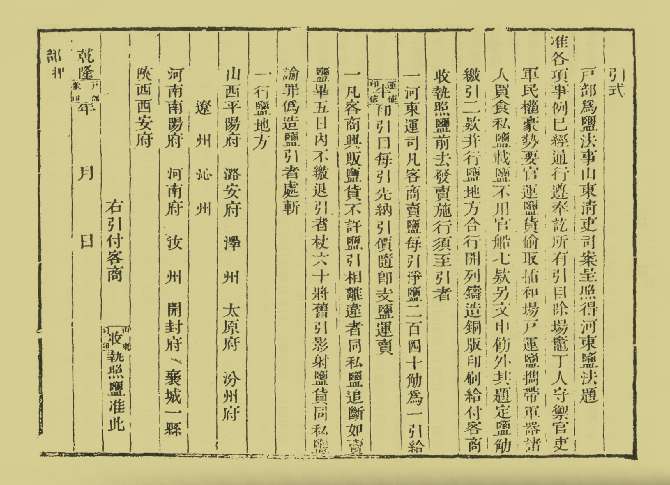 引式
戶部為鹽法事山東清吏司案呈照得河東鹽法題
准各項事例已經通行遵奉訖所有引目除場竈丁人守禦官吏
軍民權豪勢要官運鹽貨偷取插和場戶運鹽擕帶軍器諸
人買食私鹽載鹽不用官船七欵另文申飭外其題定鹽觔
繳引二欵并行鹽地方合行開列鑄造銅版印刷給付客商
收執照鹽前去發賣施行須至引者
一河東運司凡客商賣鹽每引淨鹽二百四十觔為一引給
半印引目每引先納引價隨即支鹽運賣
一凡客商興販鹽貨不許鹽引相離違者同私鹽追斷如賣
鹽畢五日內不繳退引者杖六十將舊引影射鹽貨同私鹽
論罪偽造鹽引者處斬
一行鹽地方
山西平陽府 潞安府 澤州 太原府 汾州府
遼州 沁州
河南南陽府 河南府 汝州 開封府 襄城一縣
陝西西安府
右引付客商 收執照鹽准此
乾隆 年 月 日
部押